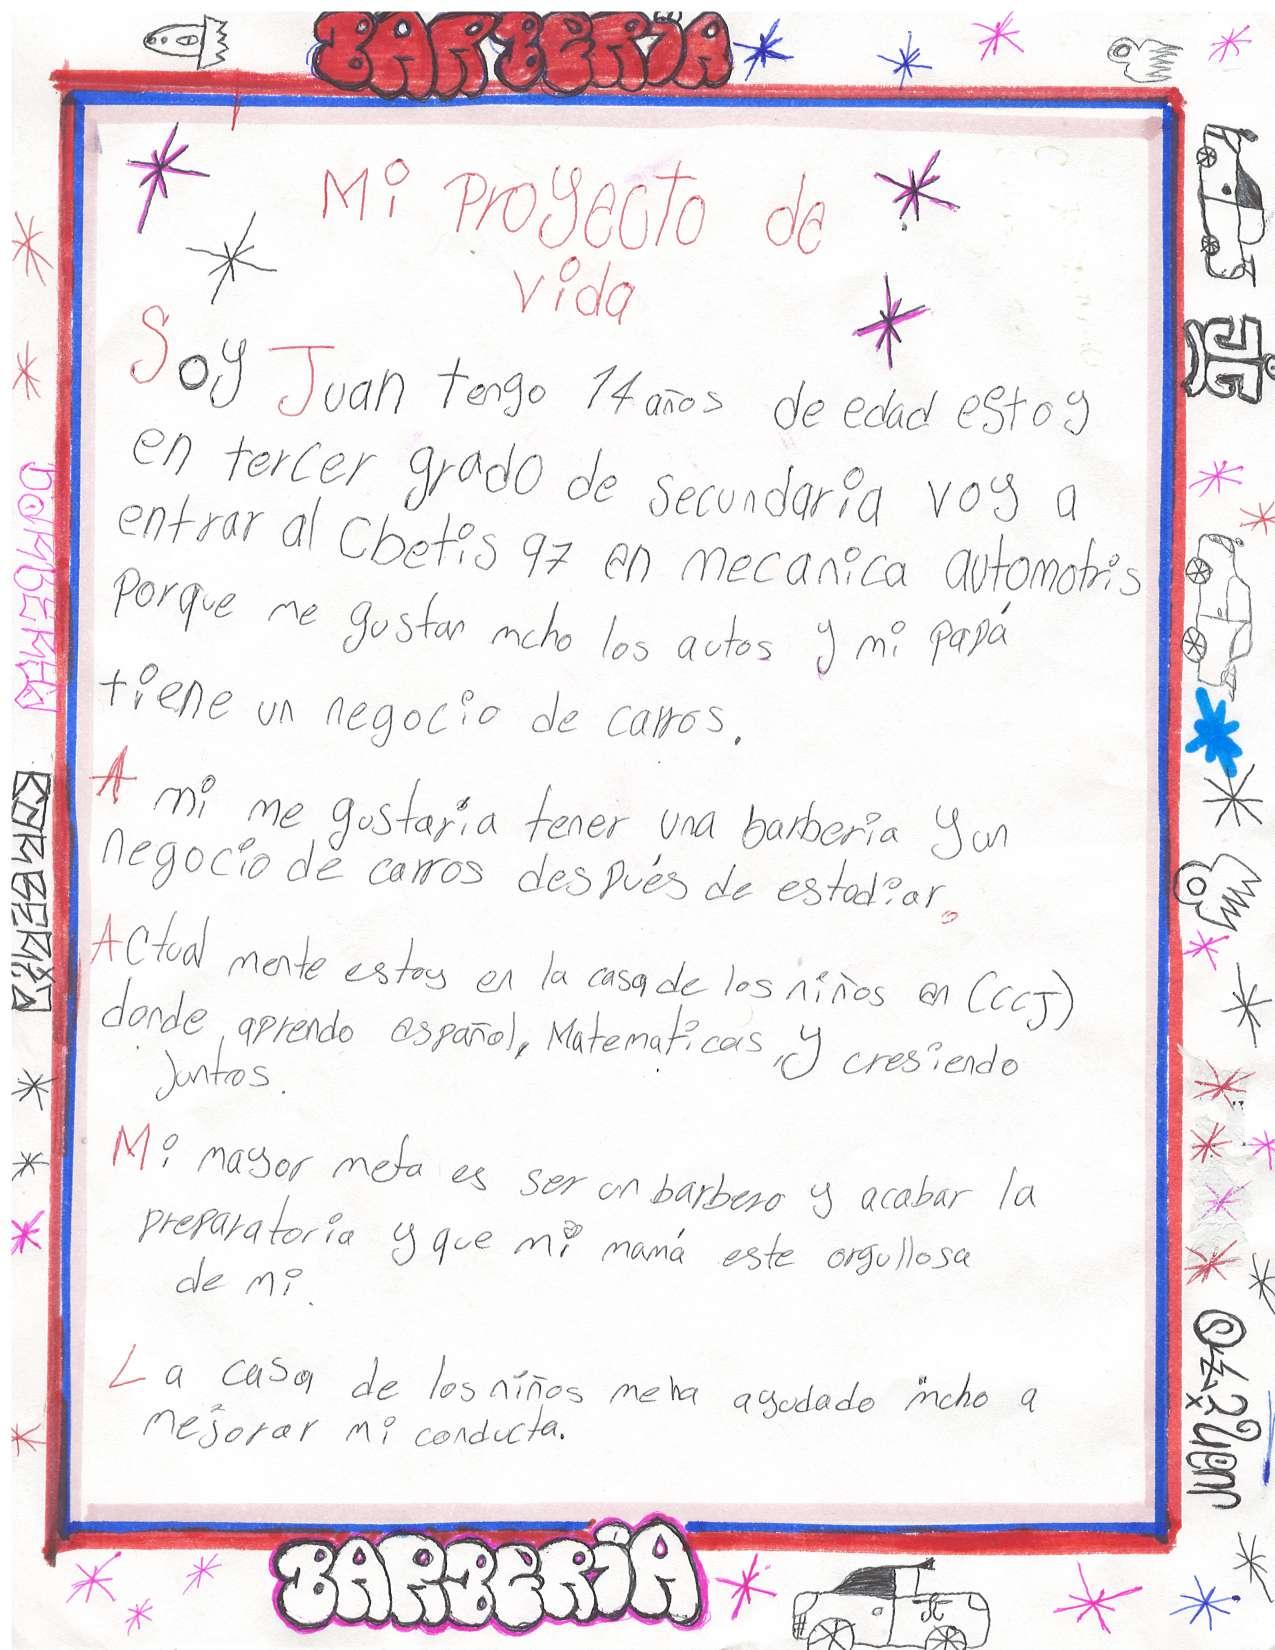 BARBERÍA
Mi Proyecto de
vida
Soy Juan tengo 14 años de edad estoy
en tercer grado de secundaria voy a
entrar al Cbetis 97 en mecanica automotris
porque me gustan mcho los autos y mi papá
tiene un negocio de carros.
A mi me gustaria tener una barberia y un
negocio de carros después de estudiar.
Actual mente estoy en la casa de los niños en (CCCJ)
donde aprendo español, Matematicas, y cresiendo
Juntos.
Mi mayor meta es ser un barbero y acabar la
preparatoria y que mi mamá este orgullosa
de mi.
La casa de los niños me ha ayudado mcho a
mejorar mi conducta.
BARBERÍA